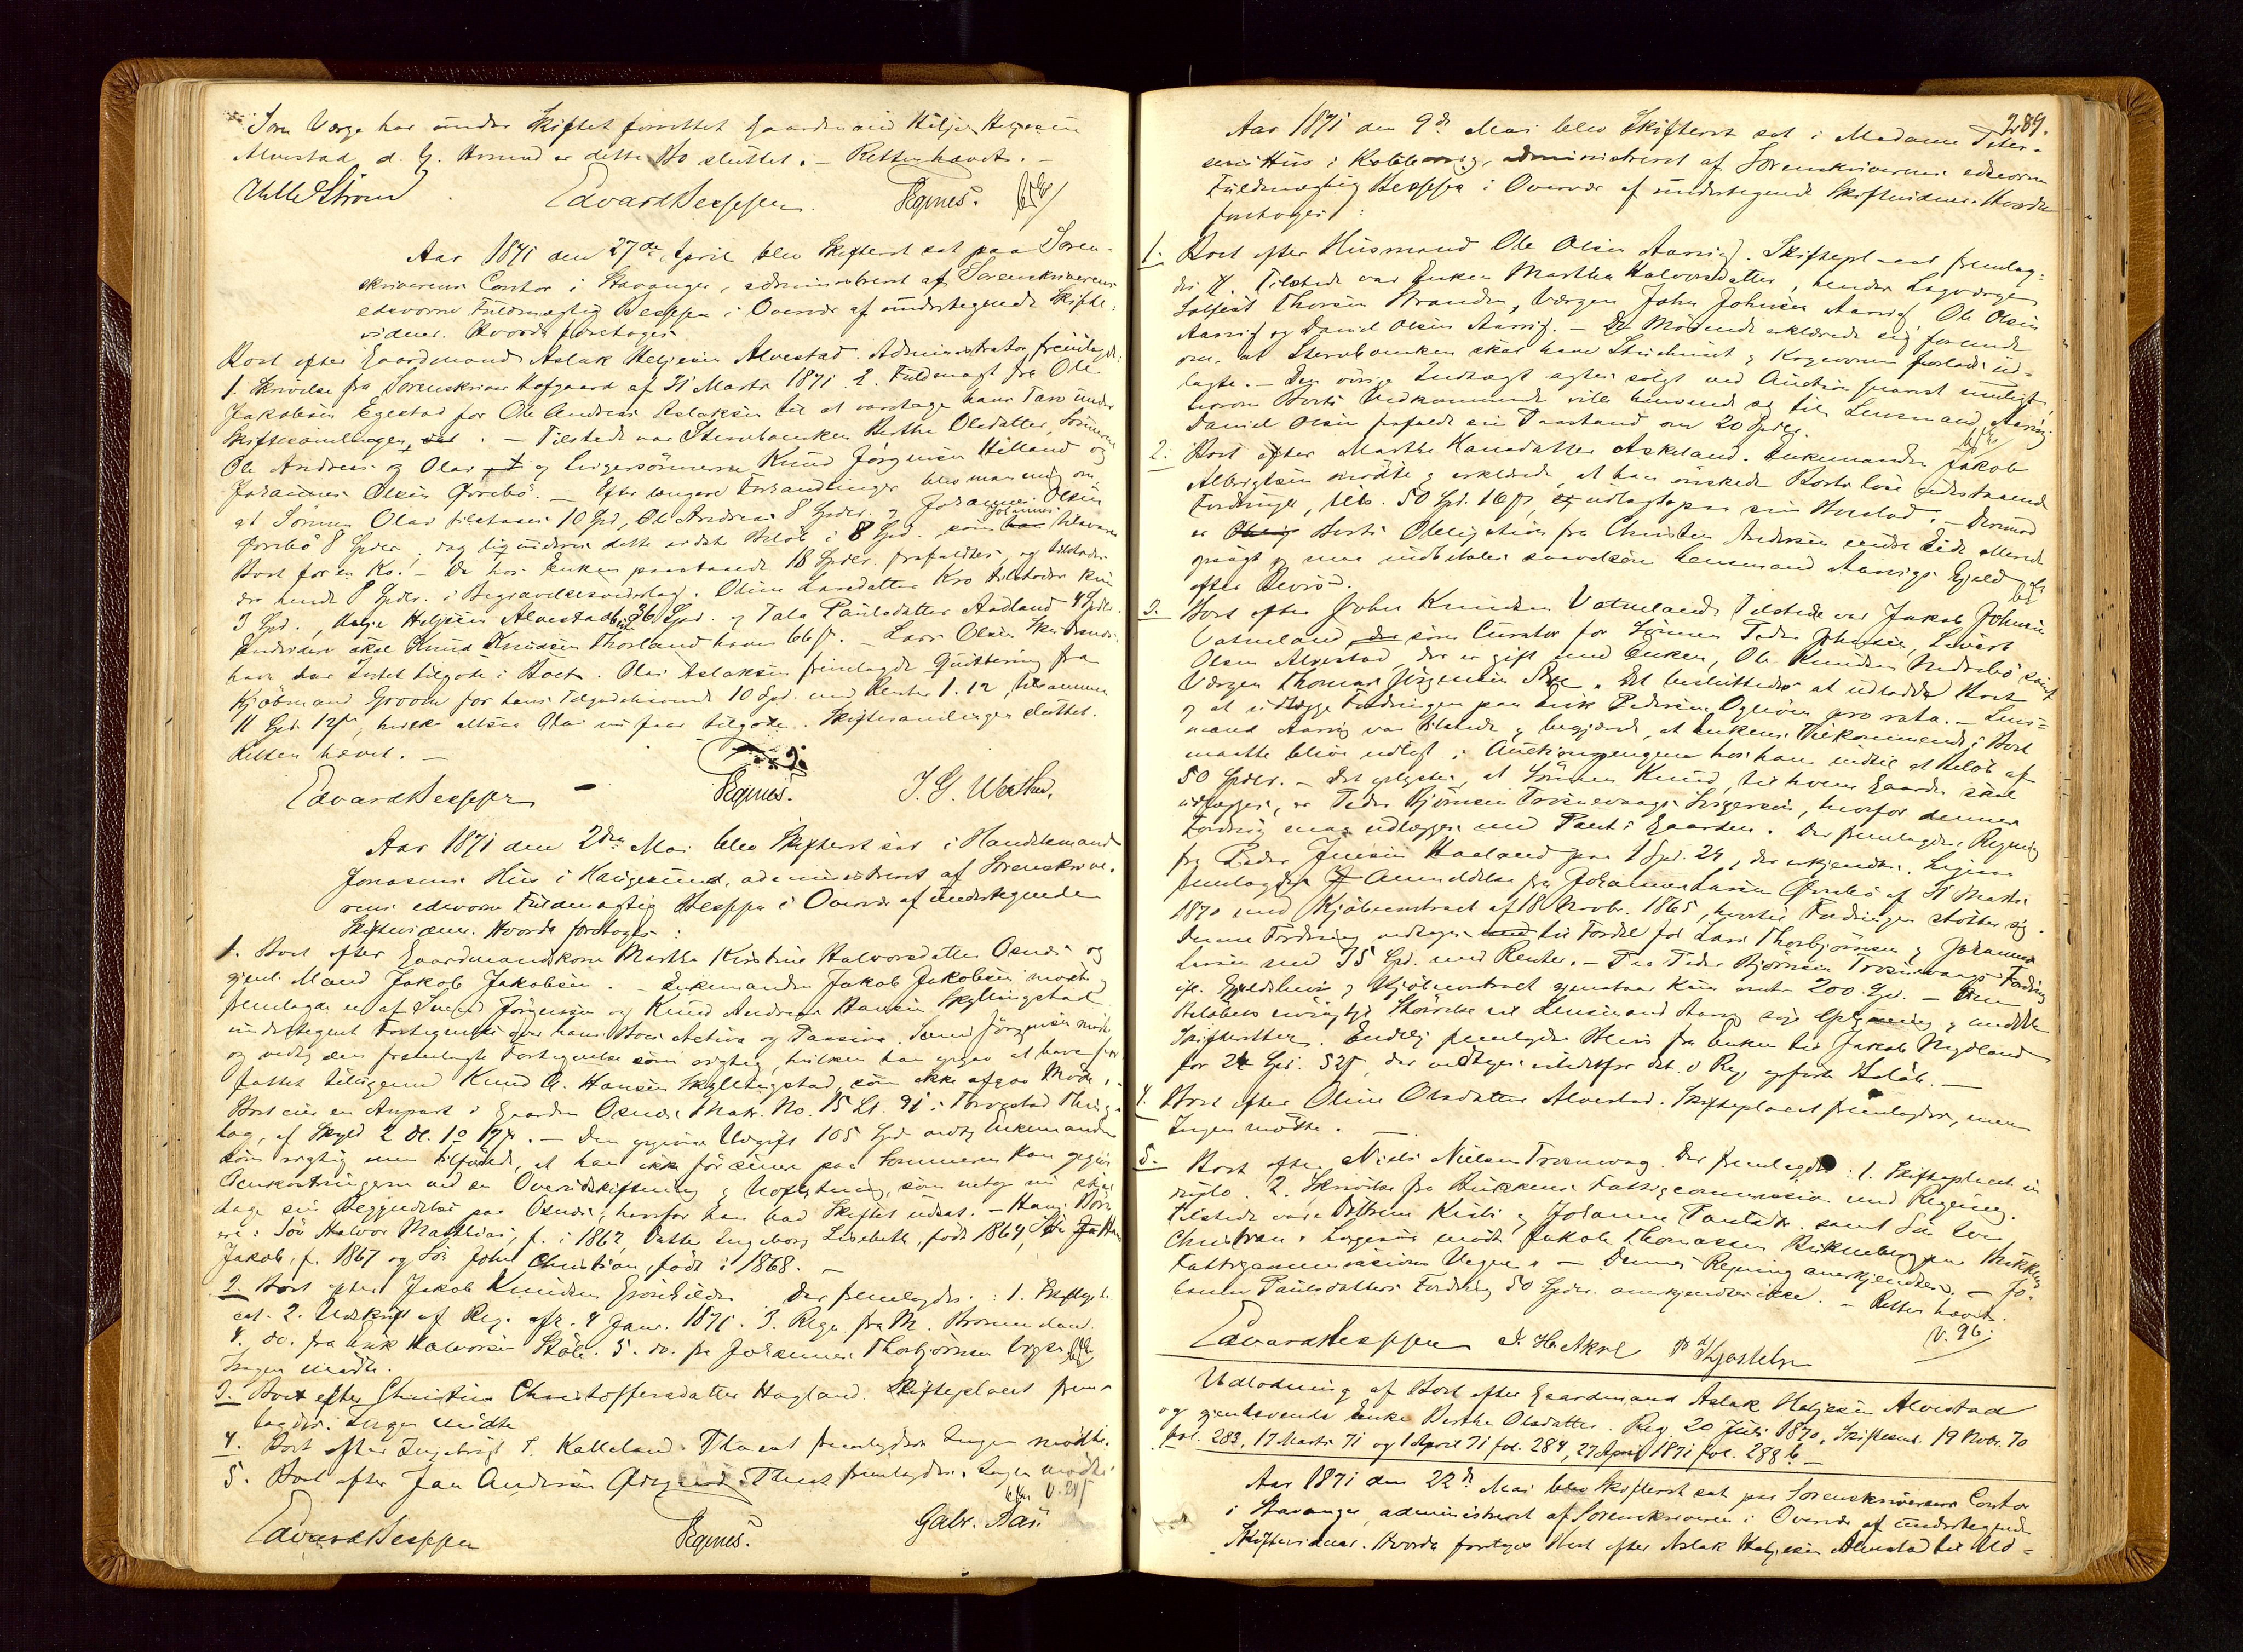 Som Værge har under Skiftet forrettet Gaardmand Hiljer Helgesen
Alvestad d. y. Hermed er dette Bo sluttet. – Retten hævet. –
Uhlle Strøm Edvard Jesppe Egenes.
Aar 1871 den 27de April blev Skifteret sat paa Soren-
skriverens Contor i Stavanger, administreret af Sorenskriverens
edsvorne Fuldmægtig Jesppe i Overvær af undertegnede Skifte-
vidner. Hvorda foretoges
Boet efter Gaardmand Aslak Heljesen Alvestad. Administrator fremlagde:
1. Skrivelse fra Sorenskriver Hofgaard af 31 Marts 1871. 2. Fuldmagt fra Ole
Jakobsen Egestad for Ole Andreas Aslaksen til at varetage hans Tarv under
Skiftesamlingen. – Tilstede var Stervboenken Berthe Olsdatter, Sønnerne
Ole Andreas og Olai og Svigersønnerne Knud Jørgensen Hilland og
Johannes Olsen Ørrebø. – Efter længere Forhandlinger blev man enig om
at Sønnen Olai tilstaaes 10 Spd, Ole Andreas 8 Spdlr. og Johannes Olsen
Ørrebø 8 Spdlr, dog liquideres dette sidste Beløb i 8 Spd. som Johannes tilsvarer
Boet for en Ko. – De hos Enken paastaaede 18 Spdlr. frafaldtes, og tilstodes
der hende 8 Spdlr. i Begravelsesvederlag. Oline Larsdatter Kro tilstodes kun
3 Spd., Helje Heljesen Alvestad 36 Spd. og Tala Paulsdatter Aadland 4 Spdlr.
Endvidere skal Knud Knudsen Thorland have 66 ß. – Lars Olsen
have har Intet tilgode i Boet. Olai Aslaksen fremlagde Quittering fra
Kjøbmand Groom for hans Tilgodehavende 10 Spd. med Renter 1. 12, tilsammen
11 Spd 12 ß, hvilke altsaa Olai nu faar tilgode. Skiftesamlingen sluttet.
Retten hævet. –
Edvard Jesppe Egenes. J. G. Wether.
Aar 1871 den 2den Mai blev Skifteret sat i Handelsmand
Jonasens Hus i Haugesund, administreret af Sorenskrive-
rens edsvorne Fuldmægtig Jesppe i Overvær af undertegnede
Skiftevidner. Hvorda foretoges:
1. Boet efter Gaardmandskone Marthe Kristine Halvorsdatter Osnes og
gjenl. Mand Jakob Jakobsen. – Enkemanden Jakob Jakobsen mødte
fremlagde en af Svend Jørgensen og Knud Andreas Hansen Skyllingstad
undertegnet Fortegnelse over hans Boes Activa og Passiva. Svend Jørgensen mødte
og vedtog den fremlagte Fortegnelse som rigtig, hvilken han opgav at have for-
fattet tilligemed Knud A. Hansen Skyllingstad, som ikke afgav Møde.
Boet eier en Anpart i Gaarden Osnes Matr. No. 15 Lb. 91 i Torvestad Thing-
lag, af Skyld 2 Dl. 1 o 17 ß. – Den opgivne Udgift 105 Spd vedtog Enkemanden
som rigtig men tilføiede, at han ikke før senere paa Sommeren kan opgive
Omkostningerne ved en Overudskiftning og Udflytning, som netop nu
dage sin Begyndelse paa Osnes, hvorfor han bad Skiftet udsat. – Hans Børn
ere: Søn Halvor Matthias, f. i 1862, Datter Ingeborg Lisebeth, født 1864, Søn
Jakob, f. 1867 og Søn John Christian, født i 1868. –
2. Boet efter Jakob Knudsen Grønhilder. Der fremlagdes: 1. Skiftepl-
cat. 2. Udskrift af Reg. afh. 4 Janr. 1871. 3. Regn. fra M. Brommeland.
4. do. fra Erik Halvorsen Støle. 5. do. fra Johannes Thorbjørnsen
Ingen mødte.
3. Boet efter Christine Christoffersdatter Hagland. Skifteplacat frem-
lagdes. Ingen mødte
4. Boet efter Ingebrigt T. Kalleland. Placat fremlagdes. Ingen mødte.
5. Boet efter Jan Andersen Ødegaard. Placat fremlagdes. Ingen mødte
Edvard Jesppe Egenes. Gabr. Aas.
289.
Aar 1871 den 9de Mai blev Skifteret sat i Madame Peter-
sens Hus i Kobbervig, administreret af Sorenskriverens edsvorne
Fuldmægtig Jesppe i Overvær af undertegnede Skiftevidner. Hvorda
foretoges:
1. Boet efter Husmand Ole Olsen Aarvig. Skifteplacat fremlag-
des. Tilstede var Enken Marthe Halvorsdatter, hendes Lagværge
Salfest Thorsen Stranden, Værgen John Johnsen Aarvig, Ole Olsen
Aarvig og Daniel Olsen Aarvig. – De Mødende erklærede sig forenede
om, at Stervboenken skal have Stuehuset og Kogeovnen forlods ud-
lagte. – Den øvrige Indbægt agtes solgt ved Auction snarest muligt,
hvorom Boets Vedkommende ville henvende sig til Lensmand Aarvig.
Daniel Olsen frafaldt sin Paastand om 20 Spdlr.
2. Boet efter Marthe Hansdatter Askeland. Enkemanden Jakob
Albrigtsen mødte og erklærede, at han ønskede Boets løse udestaaende
Fordringer, tils. 50 Spd. 16 ß, udlagt paa sin Hoslod. – Dermed
er Boets Obligation fra Christen Andersen endnu ikke allerede
opsagt og maa indbetales saavelsom Lensmand Aarvigs Gjæld
efter Bevis.
3. Boet efter John Knudsen Vatneland. Tilstede var Jakob Johnsen
Vatneland som Curator for Sønnen Peder Johnsen, Sivert
Olsen Alvestad, der er gift med Enken, Ole Knudsen Nedrebø samt
Værgen Thomas Jørgensen Støle. Det besluttedes at udlodde Boet
og at udlægge Fordringen paa Erik Pedersen Ogløen pro rata. – Lens-
mand Aarvig var tilstede og begjærede, at Enkens Tilkommende i Boet
maatte blive udlagt i Auctionspengene hos ham indtil et Beløb af
50 Spdlr. – Det oplystes, at Sønnen Knud, til hvem Gaarden skal
udlægges, er Peder Bjørnsen Trosnevaags Svigersøn, hvorfor dennes
Fordring maa udlægges med Pant i Gaarden. Der fremlagdes Regning
fra Peder Jensen Haaland paa 1 Spd. 24, der erkjendtes. Ligesaa
fremlagdes Anmeldelse fra Johannes Larsen Ørrebø af 31 Marts
1870 med Kjøbecontract af 18 Novbr. 1865, hvortil Fordringen støtter sig.
Denne Fordring vedtages til Fordel for Lars Thorbjørnsen og Johannes
Larsen med 35 Spd. med Renter. – Paa Peder Bjørnsen Trosnevaags Fordring
ifl. Gjældsbevis og Kjøbecontract gjenstaar kun endnu 200 Spd. – Om
Beløbets rigtige Størrelse vil Lensmand Aarvig søge Oplysning og meddele
Skifteretten. Endelig fremlagdes Bevis fra Enken til Jakob Nydland
for 24 Spd. 52 ß, der vedtages istedetfor det i Reg. opførte Beløb. –
4. Boet efter Oline Olsdatter Alvestad. Skifteplacat fremlagdes, men
Ingen mødte. –
5. Boet efter Niels Nielsen Trosnevaag. Der fremlagdes: 1. Skifteplacat in
duplo. 2. Skrivelse fra Bukkens Fattigcommission med Regning.
Tilstede vare Døttrene Kisti og Johanne Paulsdtr. samt Sønnen
Christian. Ligesaa mødte Jakob Thomassen Bukneberg paa Bukkens
Fattigcommissions Vegne. – Dennes Regning anerkjendtes. – Jo-
hanne Paulsdatters Fordring 50 Spdlr. anerkjendtes ikke. – Retten hævet.
Edvard Jesppe
V. 96.
Udlodning af Boet efter Gaardmand Aslak Heljesen Alvestad
og gjenlevende Enke Berthe Olsdatter. Reg. 20 Juli 1870, Skiftesaml. 19 Nvbr. 70
fol. 283, 17 Marts 71 og 1 April 71 fol. 284, 27 April 1871 fol. 288 b –
Aar 1871 den 22de Mai blev Skifteret sat paa Sorenskriverens Contor
i Stavanger, administreret af Sorenskriveren i Overvær af undertegnede
Skiftevidner. Hvorda foretoges Boet efter Aslak Heljesen Alvestad til Ud-